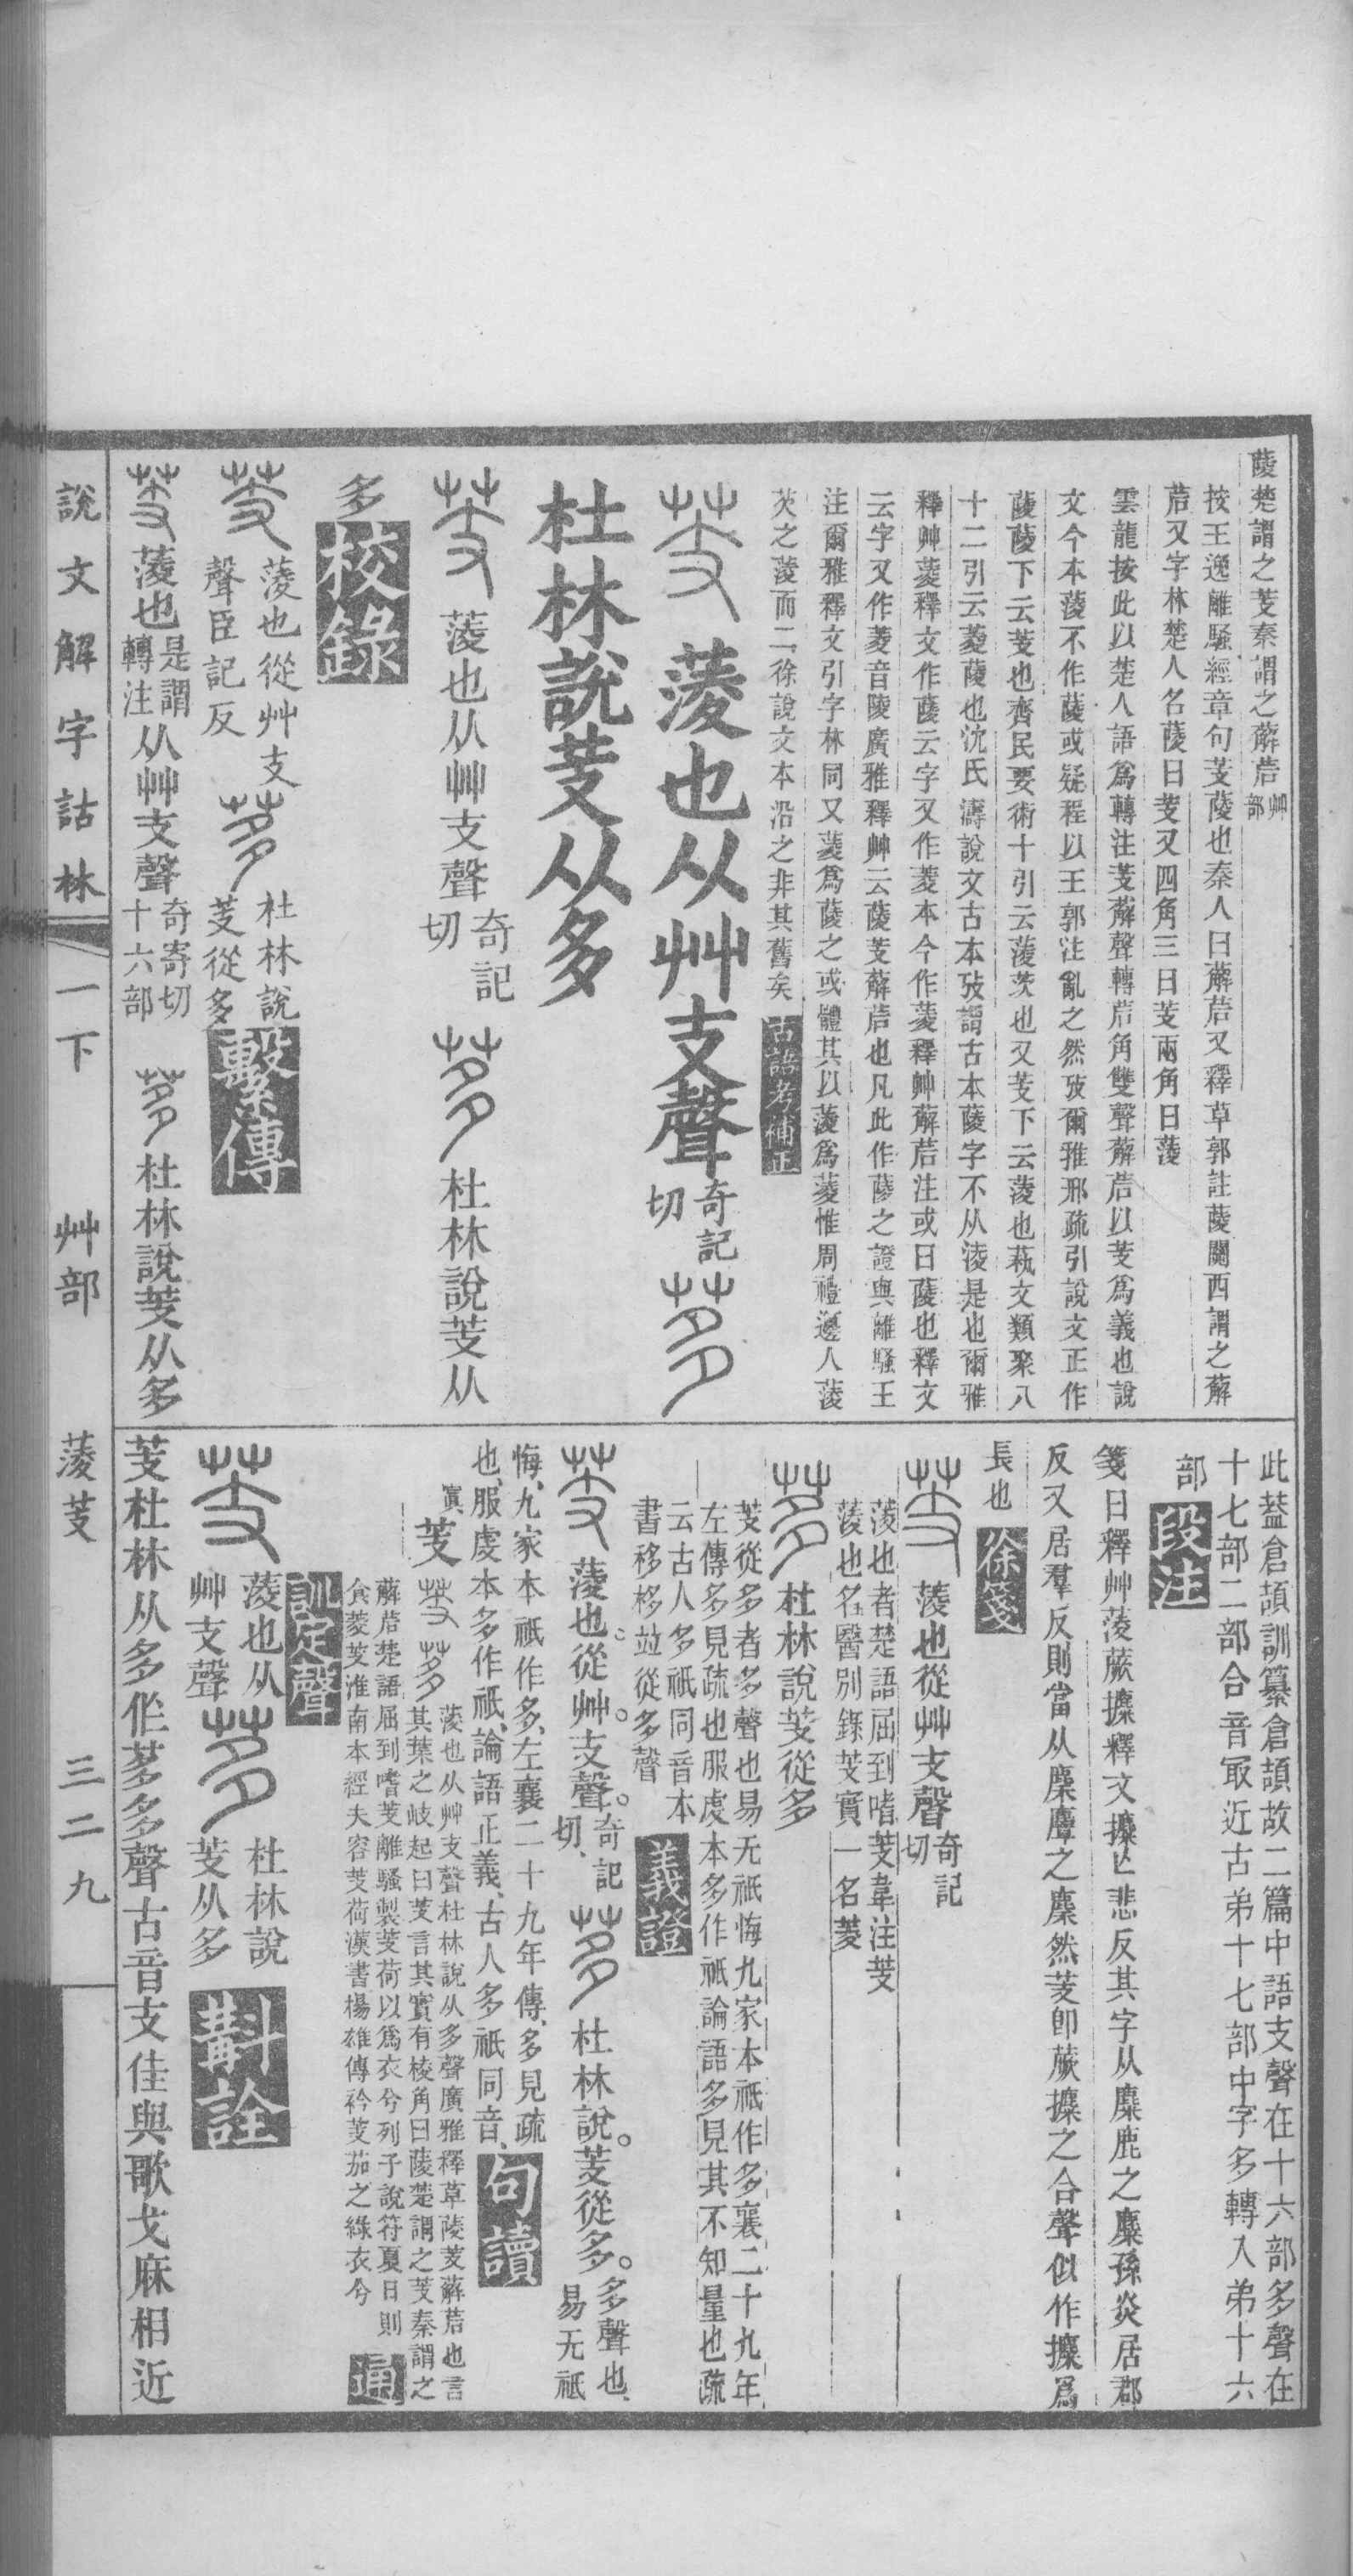 蔆楚謂之芰秦謂之薢茩艸部
按王逸離騷經章句芰蔆也秦人曰薢茩又釋草郭註蔆關西謂之薢
茩又字林楚人名蔆曰芰又四角三曰芰兩角曰蓤
雲龍按此以楚人語爲轉注芰薢聲轉茩角雙聲薢茩以芰爲義也說
文今本蓤不作蔆或疑程以王郭注亂之然攷爾雅邢疏引說文正作
蔆蔆下云芰也齊民要術十引云蓤茨也又芰下云蓤也蓺文類聚八
十二引云菱蔆也沈氏濤說文古本攷謂古本蔆字不从淩是也爾雅
釋艸菱釋文作蔆云字又作菱本今作菱釋艸薢茩注或曰蔆也釋文
云字又作菱音陵廣雅釋艸云蔆芰薢茩也凡此作蔆之證與離騷王
注爾雅釋文引字林同又菱爲蔆之或體其以蓤爲菱惟周禮籩人蓤
芡之蓤而二徐說文本沿之非其舊矣 古語考補正
芰 蓤也从艸支聲奇記切 茤
杜林說芰从多
芰 蓤也从艸支聲奇記切 茤 杜林說芰从
多 校錄
芰 蓤也從艸支聲臣記反 茤 杜林說芰從多 繫傳
芰 蓤也是謂轉注从艸支聲奇寄切十六部 茤 杜林說芰从多
此葢倉頡訓纂倉頡故二篇中語支聲在十六部多聲在
十七部二部合音冣近古弟十七部中字多轉入弟十六
部 段注
箋曰釋艸蓤蕨攗釋文攗亡悲反其字从麋鹿之麋孫炎居郡
反又居羣反則當从麇麞之麇然芰卽蕨攗之合聲似作攗爲
長也 徐箋
芰 蓤也從艸支聲奇記切
蓤也者楚語屈到嗜芰韋注芰
蓤也名醫別錄芰實一名菱
茤 杜林說芰從多
芰從多者多聲也易无祇悔九家本祇作多襄二十九年
左傳多見疏也服虔本多作祇論語多見其不知量也疏
云古人多祇同音本
書移栘竝從多聲 義證
芰 蓤也。從艸。支聲。奇記切、 茤 杜林說。芰從多。多聲也、易无祇
悔、九家本祇作多、左襄二十九年傳、多見疏
也、服虔本多作祇、論語正義、古人多祇同音、 句讀
芰 芰 茤 蓤也从艸支聲杜林說从多聲廣雅釋草蔆芰薢茩也言
其葉之岐起曰芰言其實有棱角曰蔆楚謂之芰秦謂之
薢茩楚語屈到嗜芰離騷製芰荷以爲衣兮列子說符夏日則
食菱芰淮南本經夫容芰荷漢書楊雄傳衿芰茄之綠衣兮 通
訓定聲
芰 蓤也从艸支聲 茤 杜林說芰从多 斠詮
芰杜林从多作茤多聲古音支佳與歌戈麻相近
說文解字詁林 一下 艸部 蓤芰 三二九